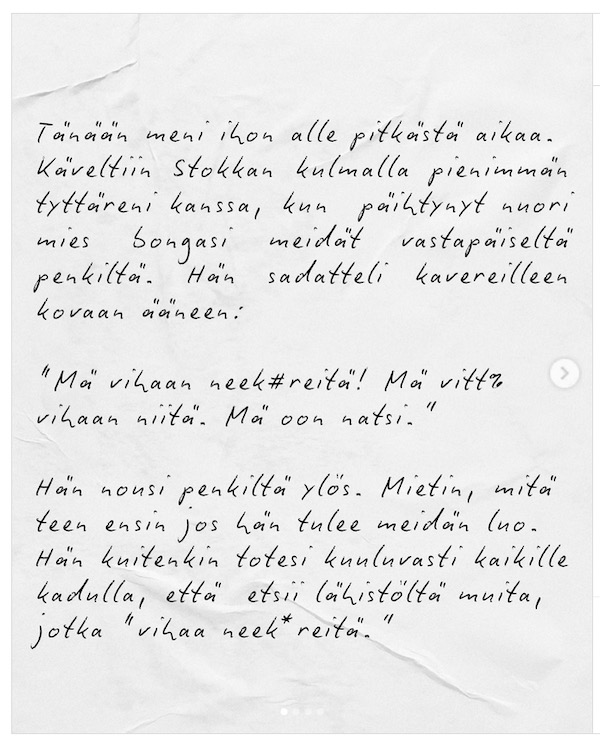 Tänään meni ihon alle pitkästä aikaa.
Käveltiin Stokkan kulmalla pienimmän
tyttäreni kanssa, kun päihtynyt nuori
mies bongasi meidät vastapäiseltä
penkiltä. Hän sadatteli kavereilleen
kovaan ääneen:
"Mä vihaan neek#reitä! Mä vitt%
vihaan niitä. Mä oon natsi."
Hän nousi penkiltä ylös. Mietin, mitä
teen ensin jos hän tulee meidän luo.
Hän kuitenkin totesi kuuluvasti kaikille
kadulla, että etsii lähistöltä muita,
jotka "vihaa neek*reitä."